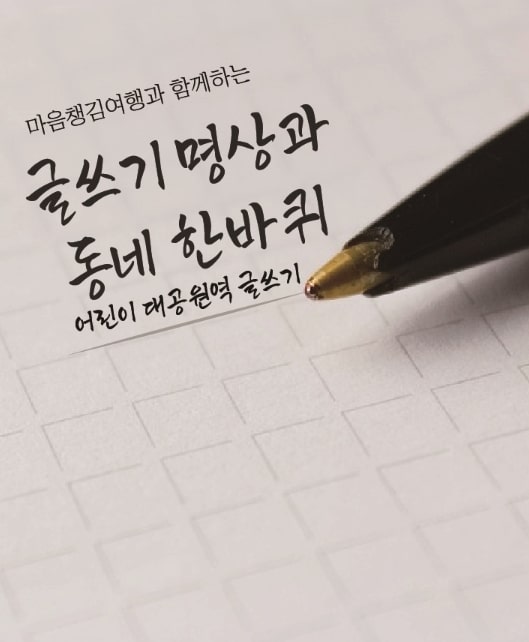 마음챙김여행과 함께하는
글쓰기 명상과
동네 한바퀴
어린이 대공원역 글쓰기